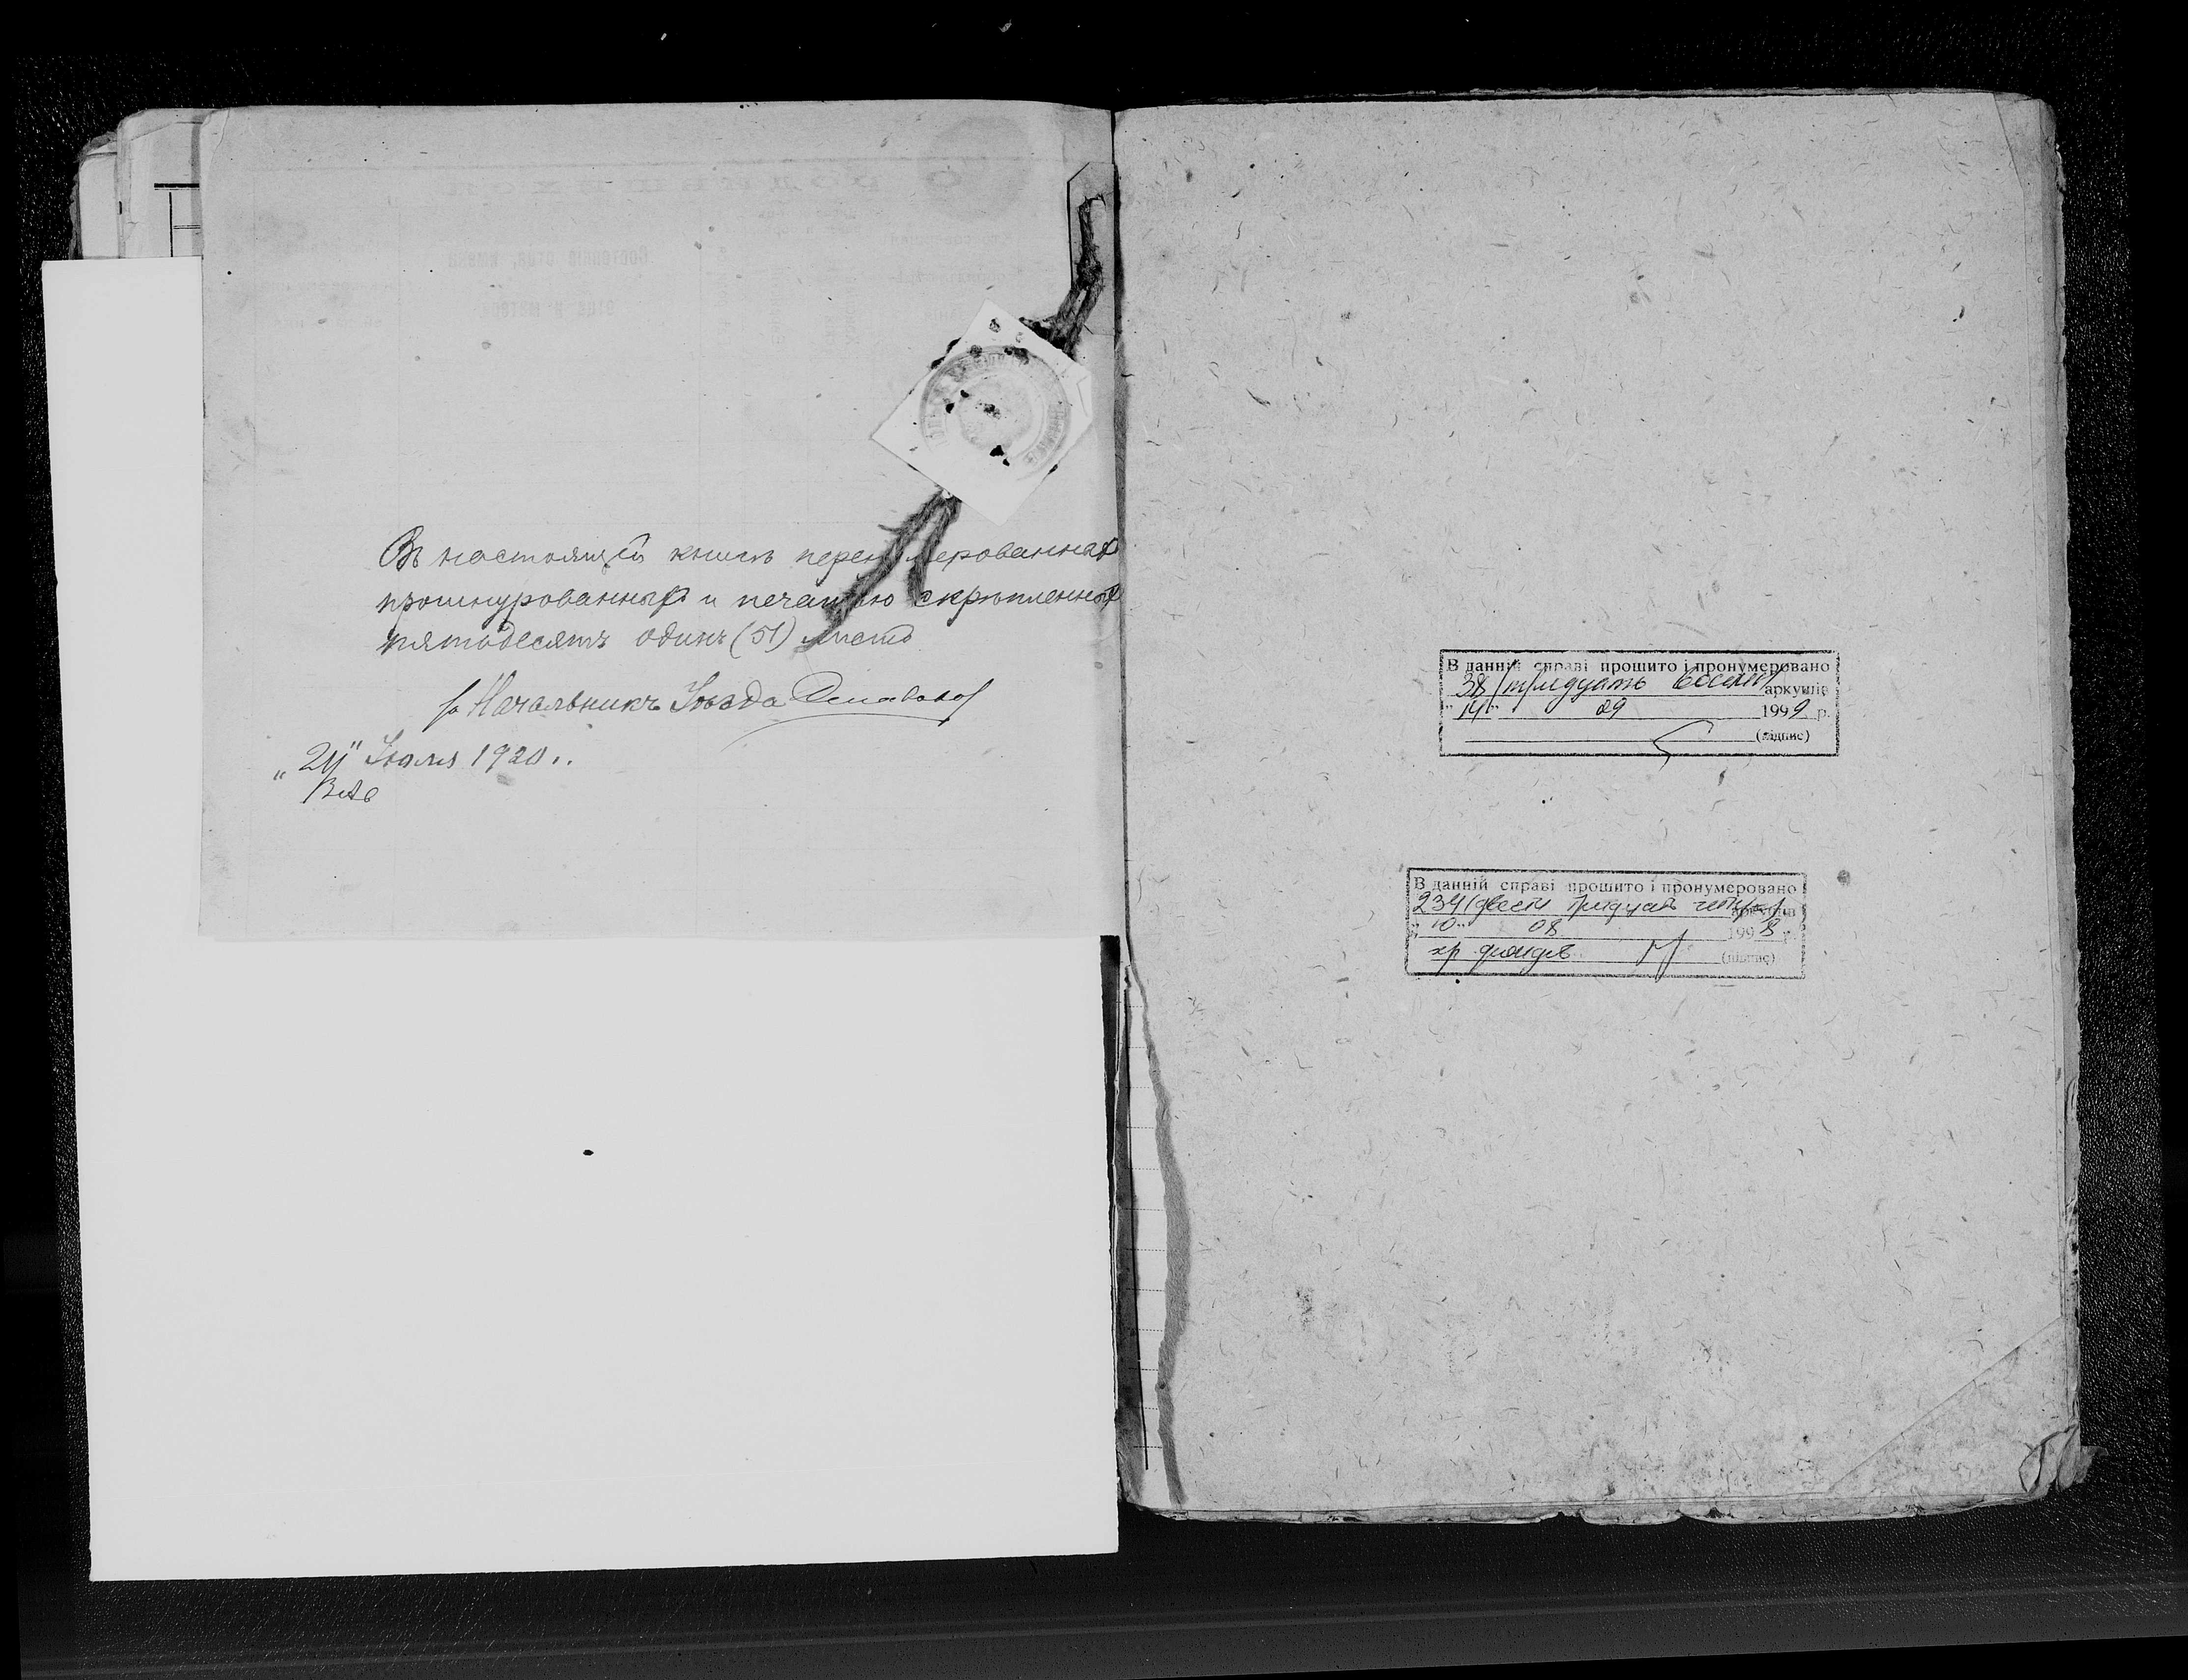 Въ настоящей книгѣ перенумерованных
прошнурованных и печатью скрѣпленных
пятьдесятъ одинъ (51) листъ
Начальникъ Уѣзда
" Іюля 1920 г.
В данній справі прошито і пронумеровано
38 (тридцать восемь) аркушів
"14" 09 1999 р.
(підпис)
В данній справі прошито і пронумеровано
234 (двести тридцать четыре) аркушів
"10" 08 1998 р.
хр. фондов
(підпис)